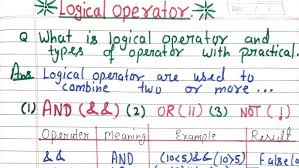 Logical Operator.
Q What is logical operator and
types of operator with practical.
Ans Logical operator are used to
combine two or more ...
(1) AND (&&) (2) OR (||) (3) NOT (!)
Operator Meaning Example Result
&& AND (10<5)&&(10>5) False(0